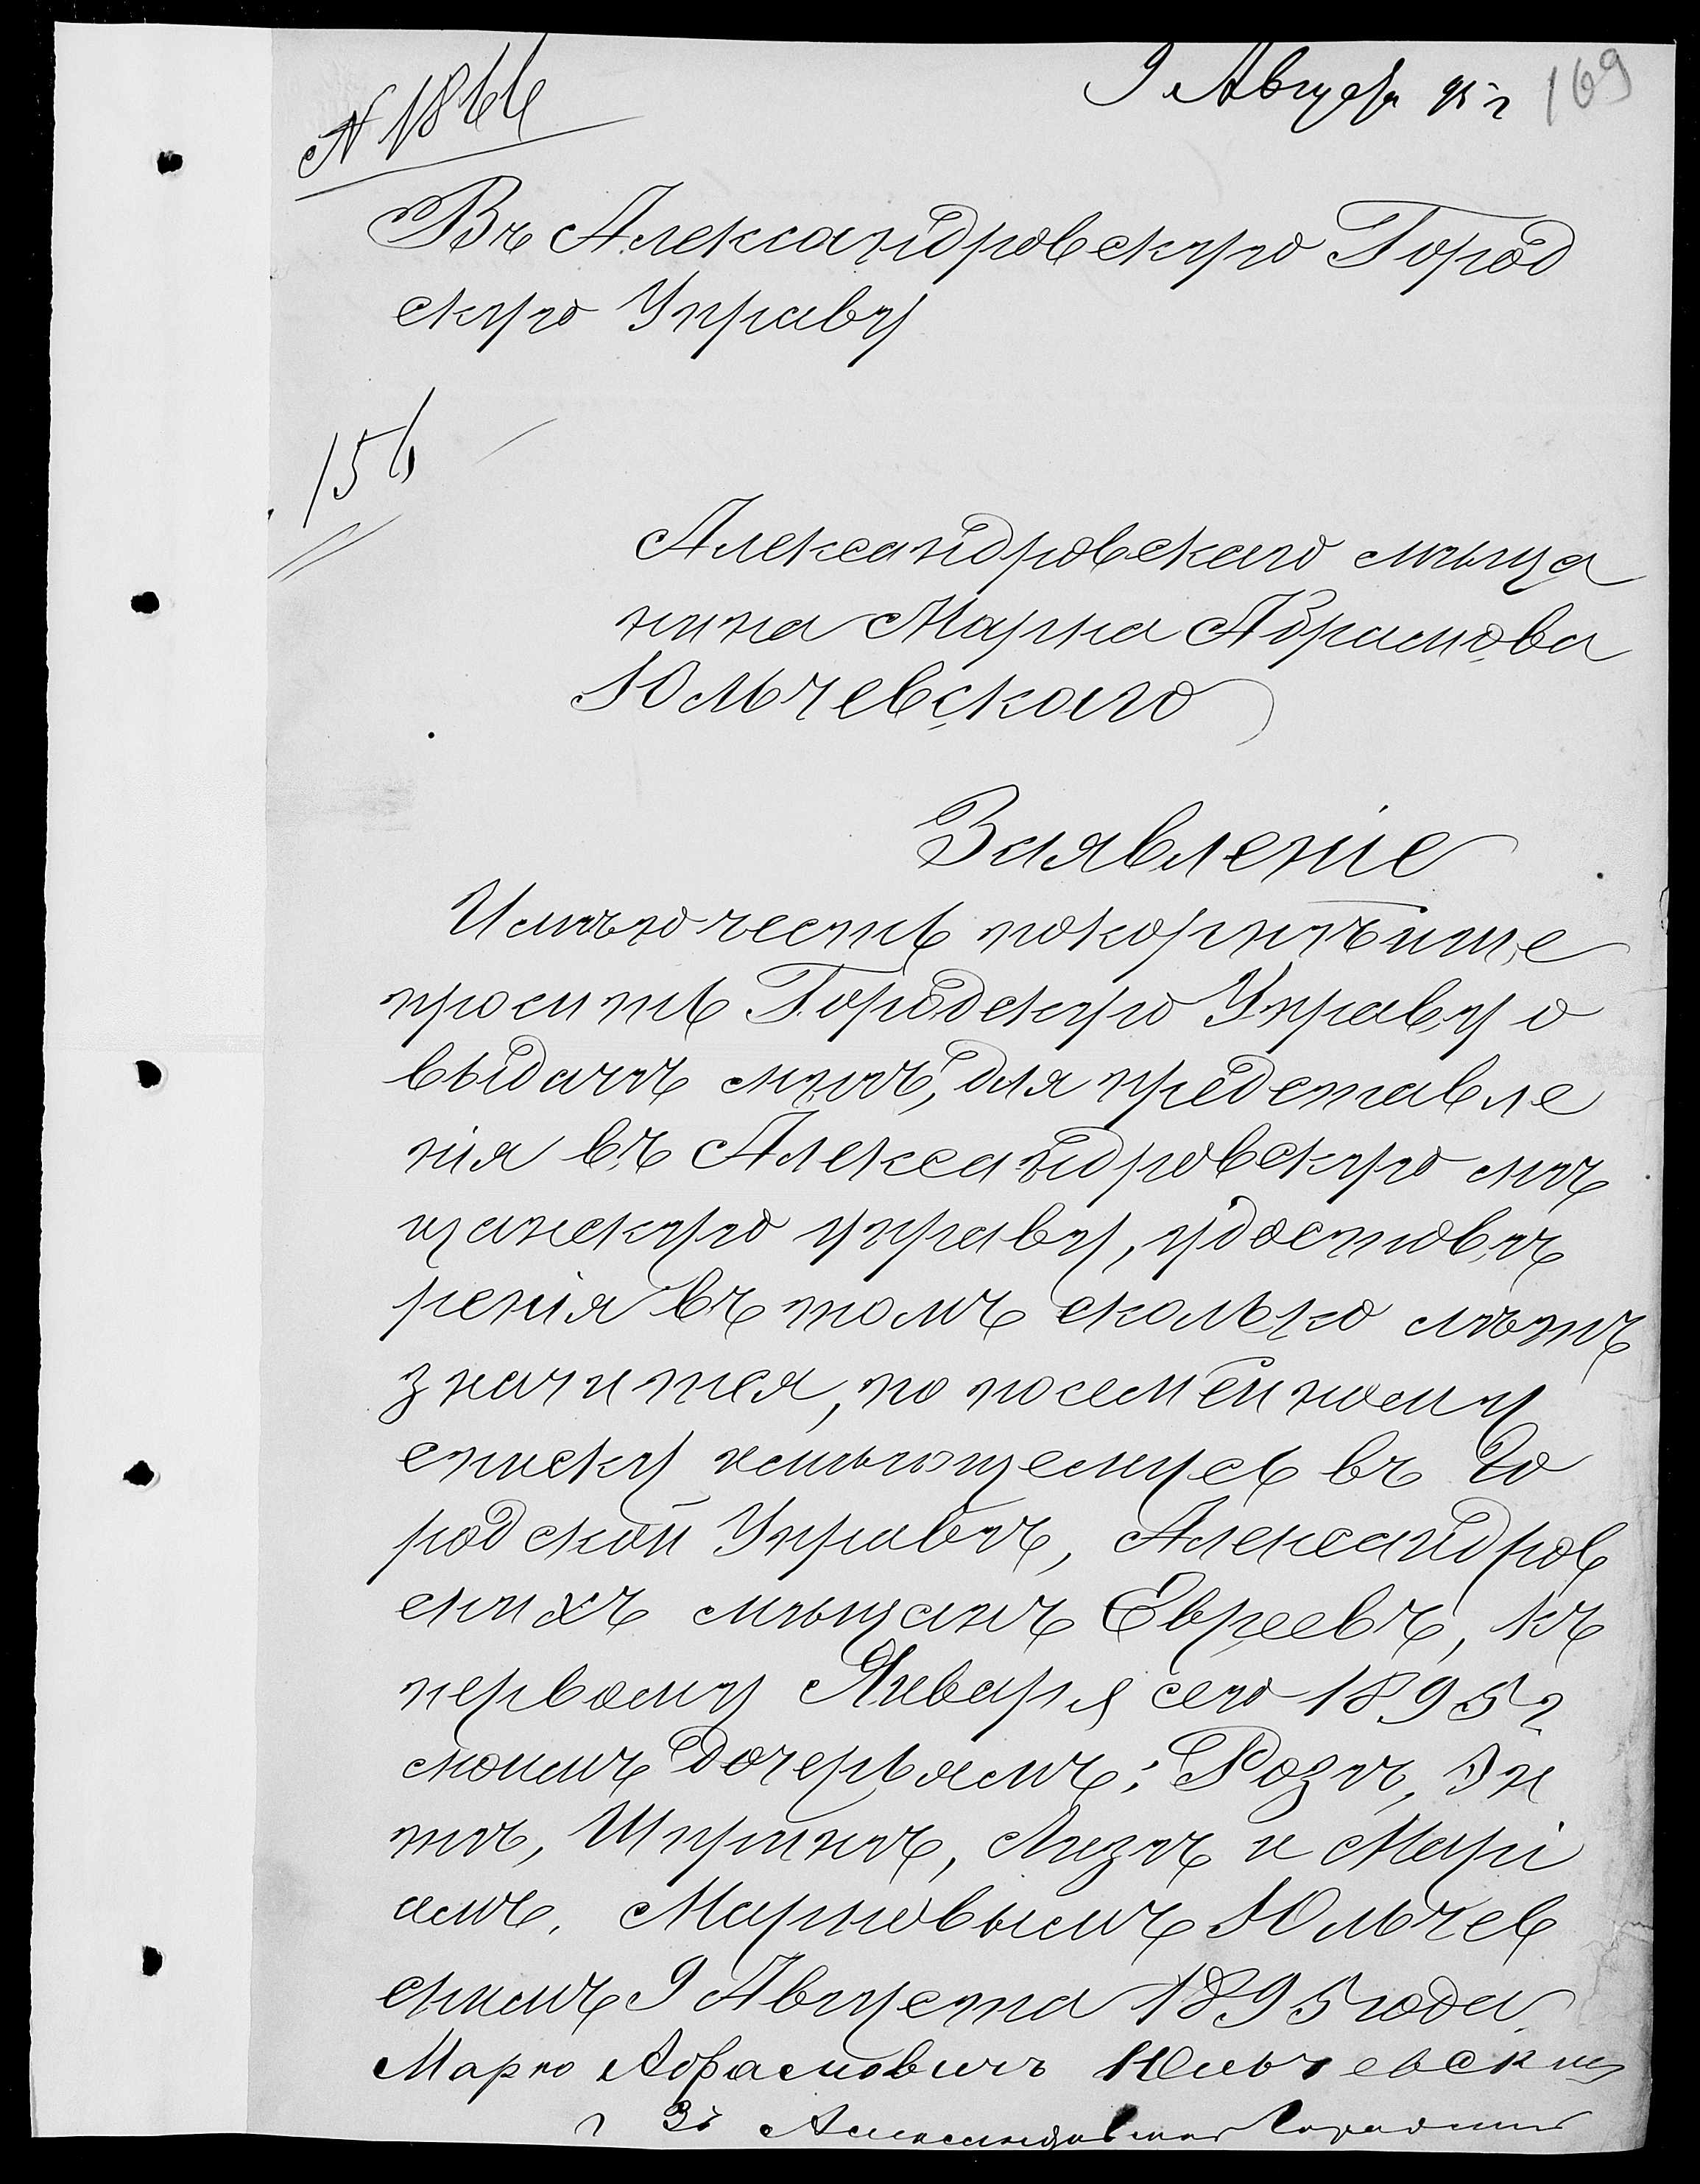 9 Августа 95 г 169
N 1866
Въ Александровскую Город
скую Управу
156
Александровскаго мѣща
нина Марка Абрамова
Юльчевскаго
Заявленіе
Имѣю честь покорнѣйше
просить Городскую Управу о
выдачѣ мнѣ, для представле
нія въ Александровскую мѣ
щанскую управу, удостовѣ
ренія въ томъ сколько лѣтъ
значится, по посемейному
списку имѣющемуся въ Го
родской Управѣ, Александров
скихъ мѣщанъ Евреевъ, къ
первому Января сего 1895 г
моимъ дочерьямъ: Розѣ, Эн
тѣ, Шпринѣ, Лизѣ и Марі
амѣ, Марковымъ Юльчев
скимъ 9 Августа 1895 года.
Марко Абрамовичъ Юльчевский